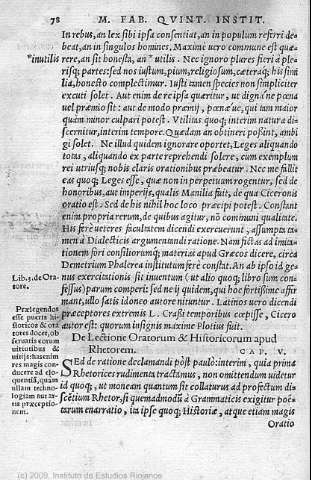 78 M. FAB. QVINT. INSTIT.
In rebus, an lex sibi ipsa consentiat, an in populum referri de-
beat, an in singulos homines. Maxime uero commune est quæ-
rere, an sit honesta, an *utilis. Nec ignoro plures fieri a ple-
*inutilis
risq; partes: sed nos iustum, pium, religiosum, cæteraq; his simi
lia, honesto complectimur. Iusti tamen species non simpliciter
excuti solet. Aut enim de re ipsa quæritur, ut digna ne pœna
uel præmio sit: aut de modo præmij, pœnæ ue, qui tam maior
quàm minor culpari potest. Vtilitas quoq; interim natura di-
scernitur, interim tempore. Quædam an obtineri possint, ambi
gi solet. Ne illud quidem ignorare oportet, Leges aliquando
totas, aliquando ex parte reprehendi solere, cum exemplum
rei utriusq; nobis claris orationibus præbeatur. Nec me fallit
eas quoq; Leges esse, quæ non in perpetuum rogentur, sed de
honoribus, aut imperijs, qualis Manilia fuit, de qua Ciceronis
oratio est. Sed de his nihil hoc loco præcipi potest. Constant
enim propria rerum, de quibus agitur, nō communi qualitate.
His ferè ueteres facultatem dicendi exercuerunt, assumpta ta-
men à Dialecticis argumentandi ratione. Nam fictas ad imita-
tionem fori consiliorumq; materias apud Græcos dicere, circa
Demetrium Phalerea institutum ferè constat. An ab ipso id ge-
nus exercitationis sit inuentum (ut alio quoq; libro sum con-
Lib. 5. de Ora-
tore.
fessus) parum comperi: sed ne ij quidem, qui hoc fortissime affir
mant, ullo satis idoneo autore nituntur. Latinos uero dicendi
præceptores extremis L. Crassi temporibus cœpisse, Cicero
autor est: quorum insignis maxime Plotius fuit.
Prælegendos
esse pueris hi-
storicos & ora
tores docet, ob
seruatis eorum
De Lectione Oratorum & Historicorum apud
Rhetorem. CAP. V.
SEd de ratione declamandi pòst paulò: interim, quia prima
Rhetorices rudimenta tractamus, non omittendum uidetur
id quoq;, ut moneam quantum sit collaturus ad profectum di-
scētium Rhetor, si quemadmodū à Grammaticis exigitur poë-
tarum enarratio, ita ipse quoq; Historiæ, atque etiam magis
Oratio
(c) 2009. Instituto de Estudios Riojanos